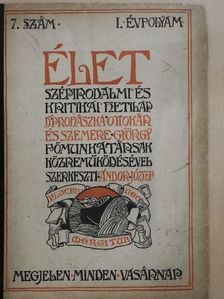 7. SZÁM· I. ÉVFOLYAM·
ÉLET
SZÉPIRODALMI ÉS
KRITIKAI HETILAP
Dr PROHÁSZKA OTTOKÁR
ÉS SZEMERE·GYÖRGY
FŐMUNKATÁRSAK
KÖZREMŰKÖDÉSÉVEL
SZERKESZTI ANDOR JÓZSEF
FLUCTUAT NEC
MERGITUR
MEGJELEN·MINDEN·VASÁRNAP